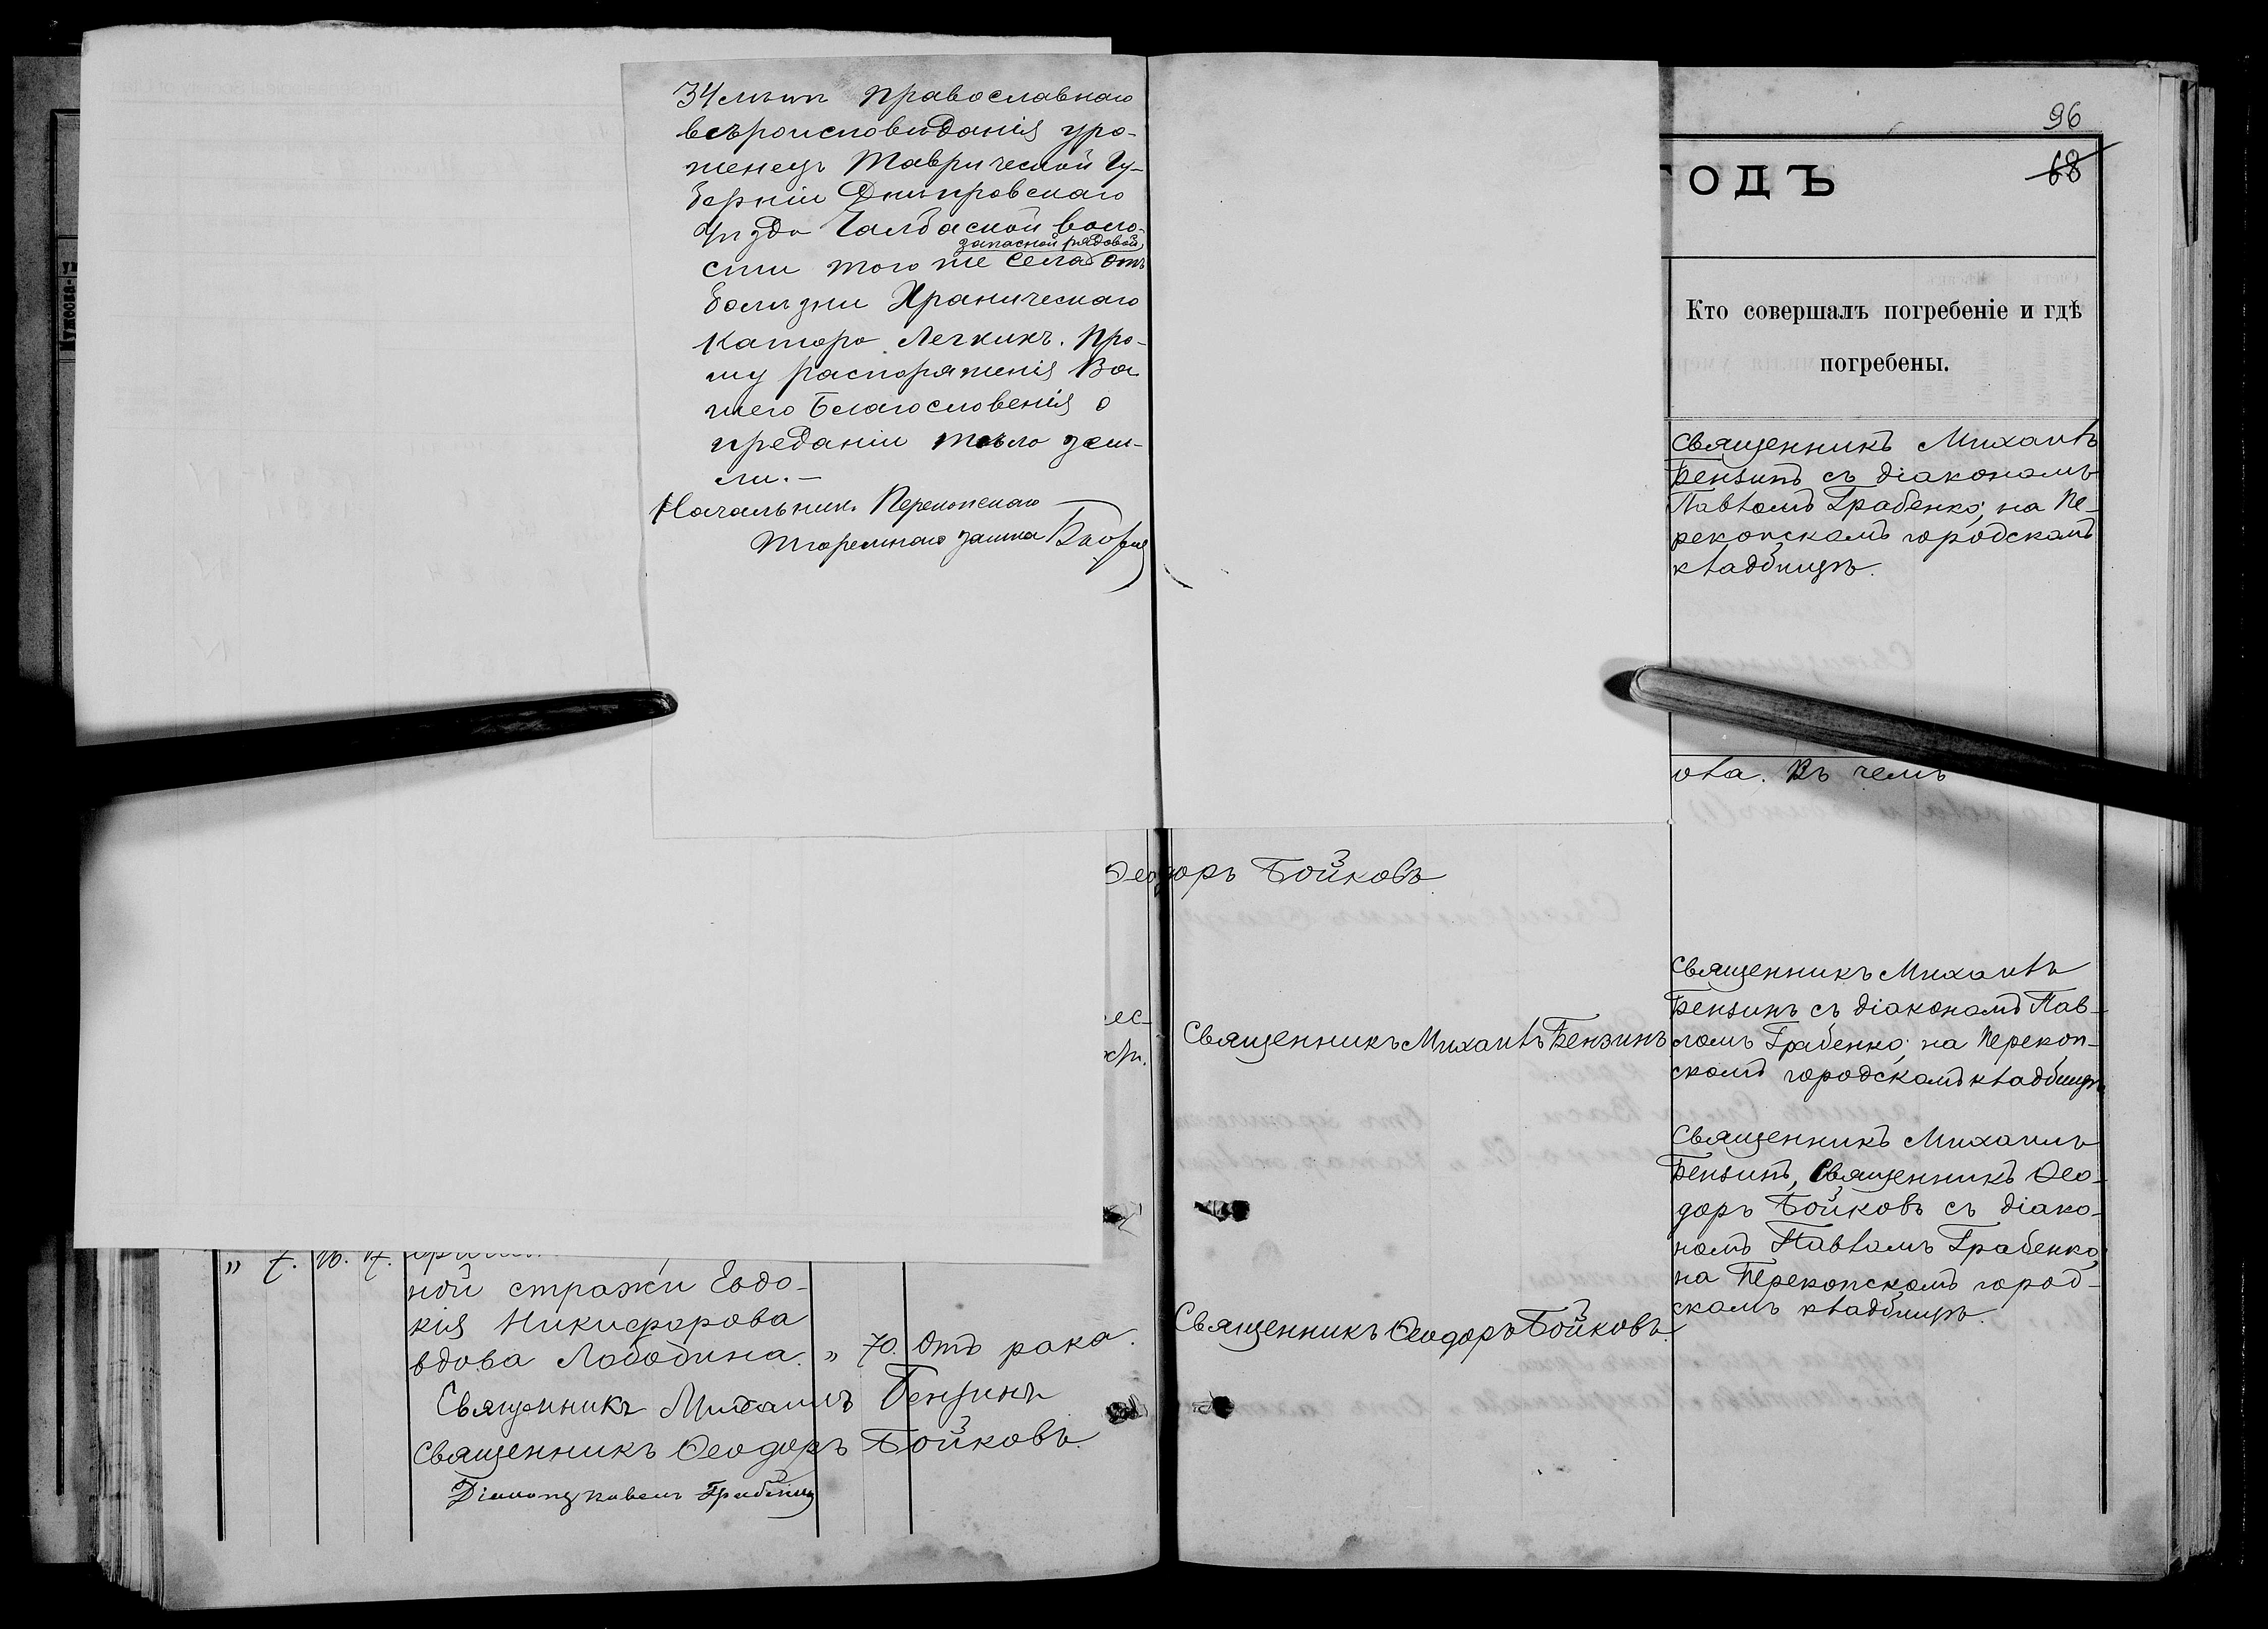 34 лѣтъ православнаго
вѣроисповѣданія уро-
женецъ Таврической Гу-
берніи Днѣпровскаго
уѣзда Чалбаской воло-
запасной рядовой
сти того же села отъ
болѣзни Хроническаго
Катара Легкихъ. Про-
шу распоряженія Ва
шего Благословенія о
преданіи тѣло зем-
ли.—
Начальник. Перекопскаго
Тюремнаго замка
96
68
ОДЪ
Кто совершалъ погребеніе и гдѣ
погребены.
Священникъ Михаилъ
Бензинъ съ діакономъ
Павломъ Грабенко; на Пе-
рекопскомъ городскомъ
кладбищѣ.
ова. Въ чемъ
Ѳеодоръ Бойковъ
Священникъ Михаилъ
Бензинъ съ діакономъ Пав-
ломъ Грабенко; на Перекоп-
скомъ городскомъ кладбищѣ
Священникъ Михаилъ Бензинъ
Священникъ Михаилъ
Бензинъ, Священникъ Ѳео-
доръ Бойковъ съ діако-
номъ Павломъ Грабенко,
на Перекопскомъ город-
скомъ кладбищѣ.
Священникъ Ѳеодоръ Бойковъ.
ес-
„ 7.
ной стражи Евдо-
кія Никифорова
вдова Лободина. „ 70. Отъ рака.
Священникъ Михаилъ Бензинъ
Священникъ Ѳеодоръ Бойковъ.
Діаконъ Павелъ Грабенко